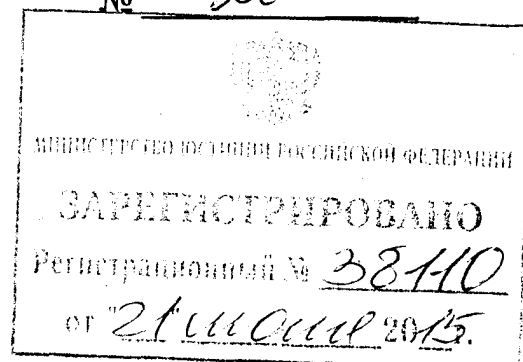 №
МИНИСТЕРСТВО ЮСТИЦИИ РОССИЙСКОЙ ФЕДЕРАЦИИ
ЗАРЕГИСТРИРОВАНО
Регистрационный № 38110
от "21" июля 2015.